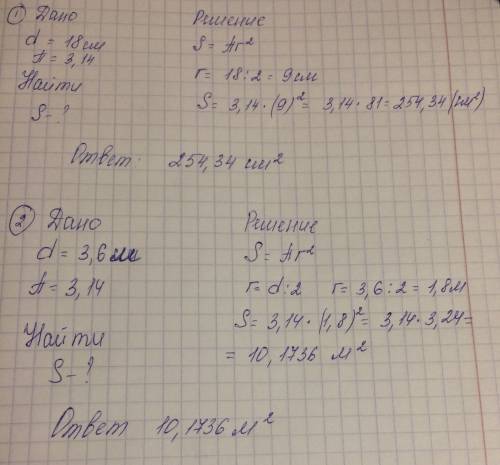 ① Дано
d = 18 см
π = 3,14
Найти
S - ?
Решение
S = πr²
r = 18 : 2 = 9 см
S = 3,14 · (9)² = 3,14 · 81 = 254,34 (см²)
Ответ: 254,34 см²
② Дано
d = 3,6 м
π = 3,14
Найти
S - ?
Решение
S = πr²
r = d : 2 r = 3,6 : 2 = 1,8 м
S = 3,14 · (1,8)² = 3,14 · 3,24 =
= 10,1736 м²
Ответ 10,1736 м²